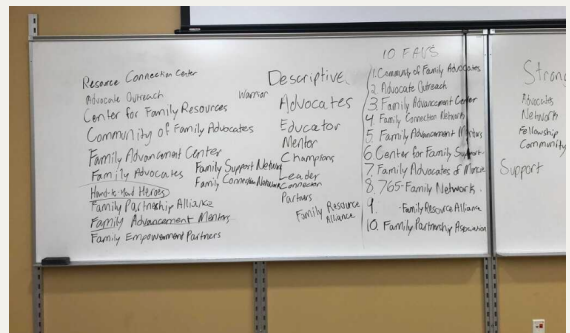 Resource Connection Center
Advocate Outreach
Center for Family Resources
Community of Family Advocates
Family Advancement Center
Family Advocates
Family Support Network
Family Connection Network
Hand-to-Hand Heroes
Family Partnership Alliance
Family Advancement Mentors
Family Empowerment Partners
Descriptive
Warrior
Advocates
Educator
Mentor
Champions
Leader
Connection
Partners
Family Resource
Alliance
10 FAVS
1. Community of Family Advocates
2. Advocate Outreach
3. Family Advancement Center
4. Family Connection Network
5. Family Advancement Mentors
6. Center for Family Support
7. Family Advocates of
8. 765-Family Network
9. -Family Resource Alliance
10. Family Partnership
Strong
Advocates
Network
Fellowship
Community
Support